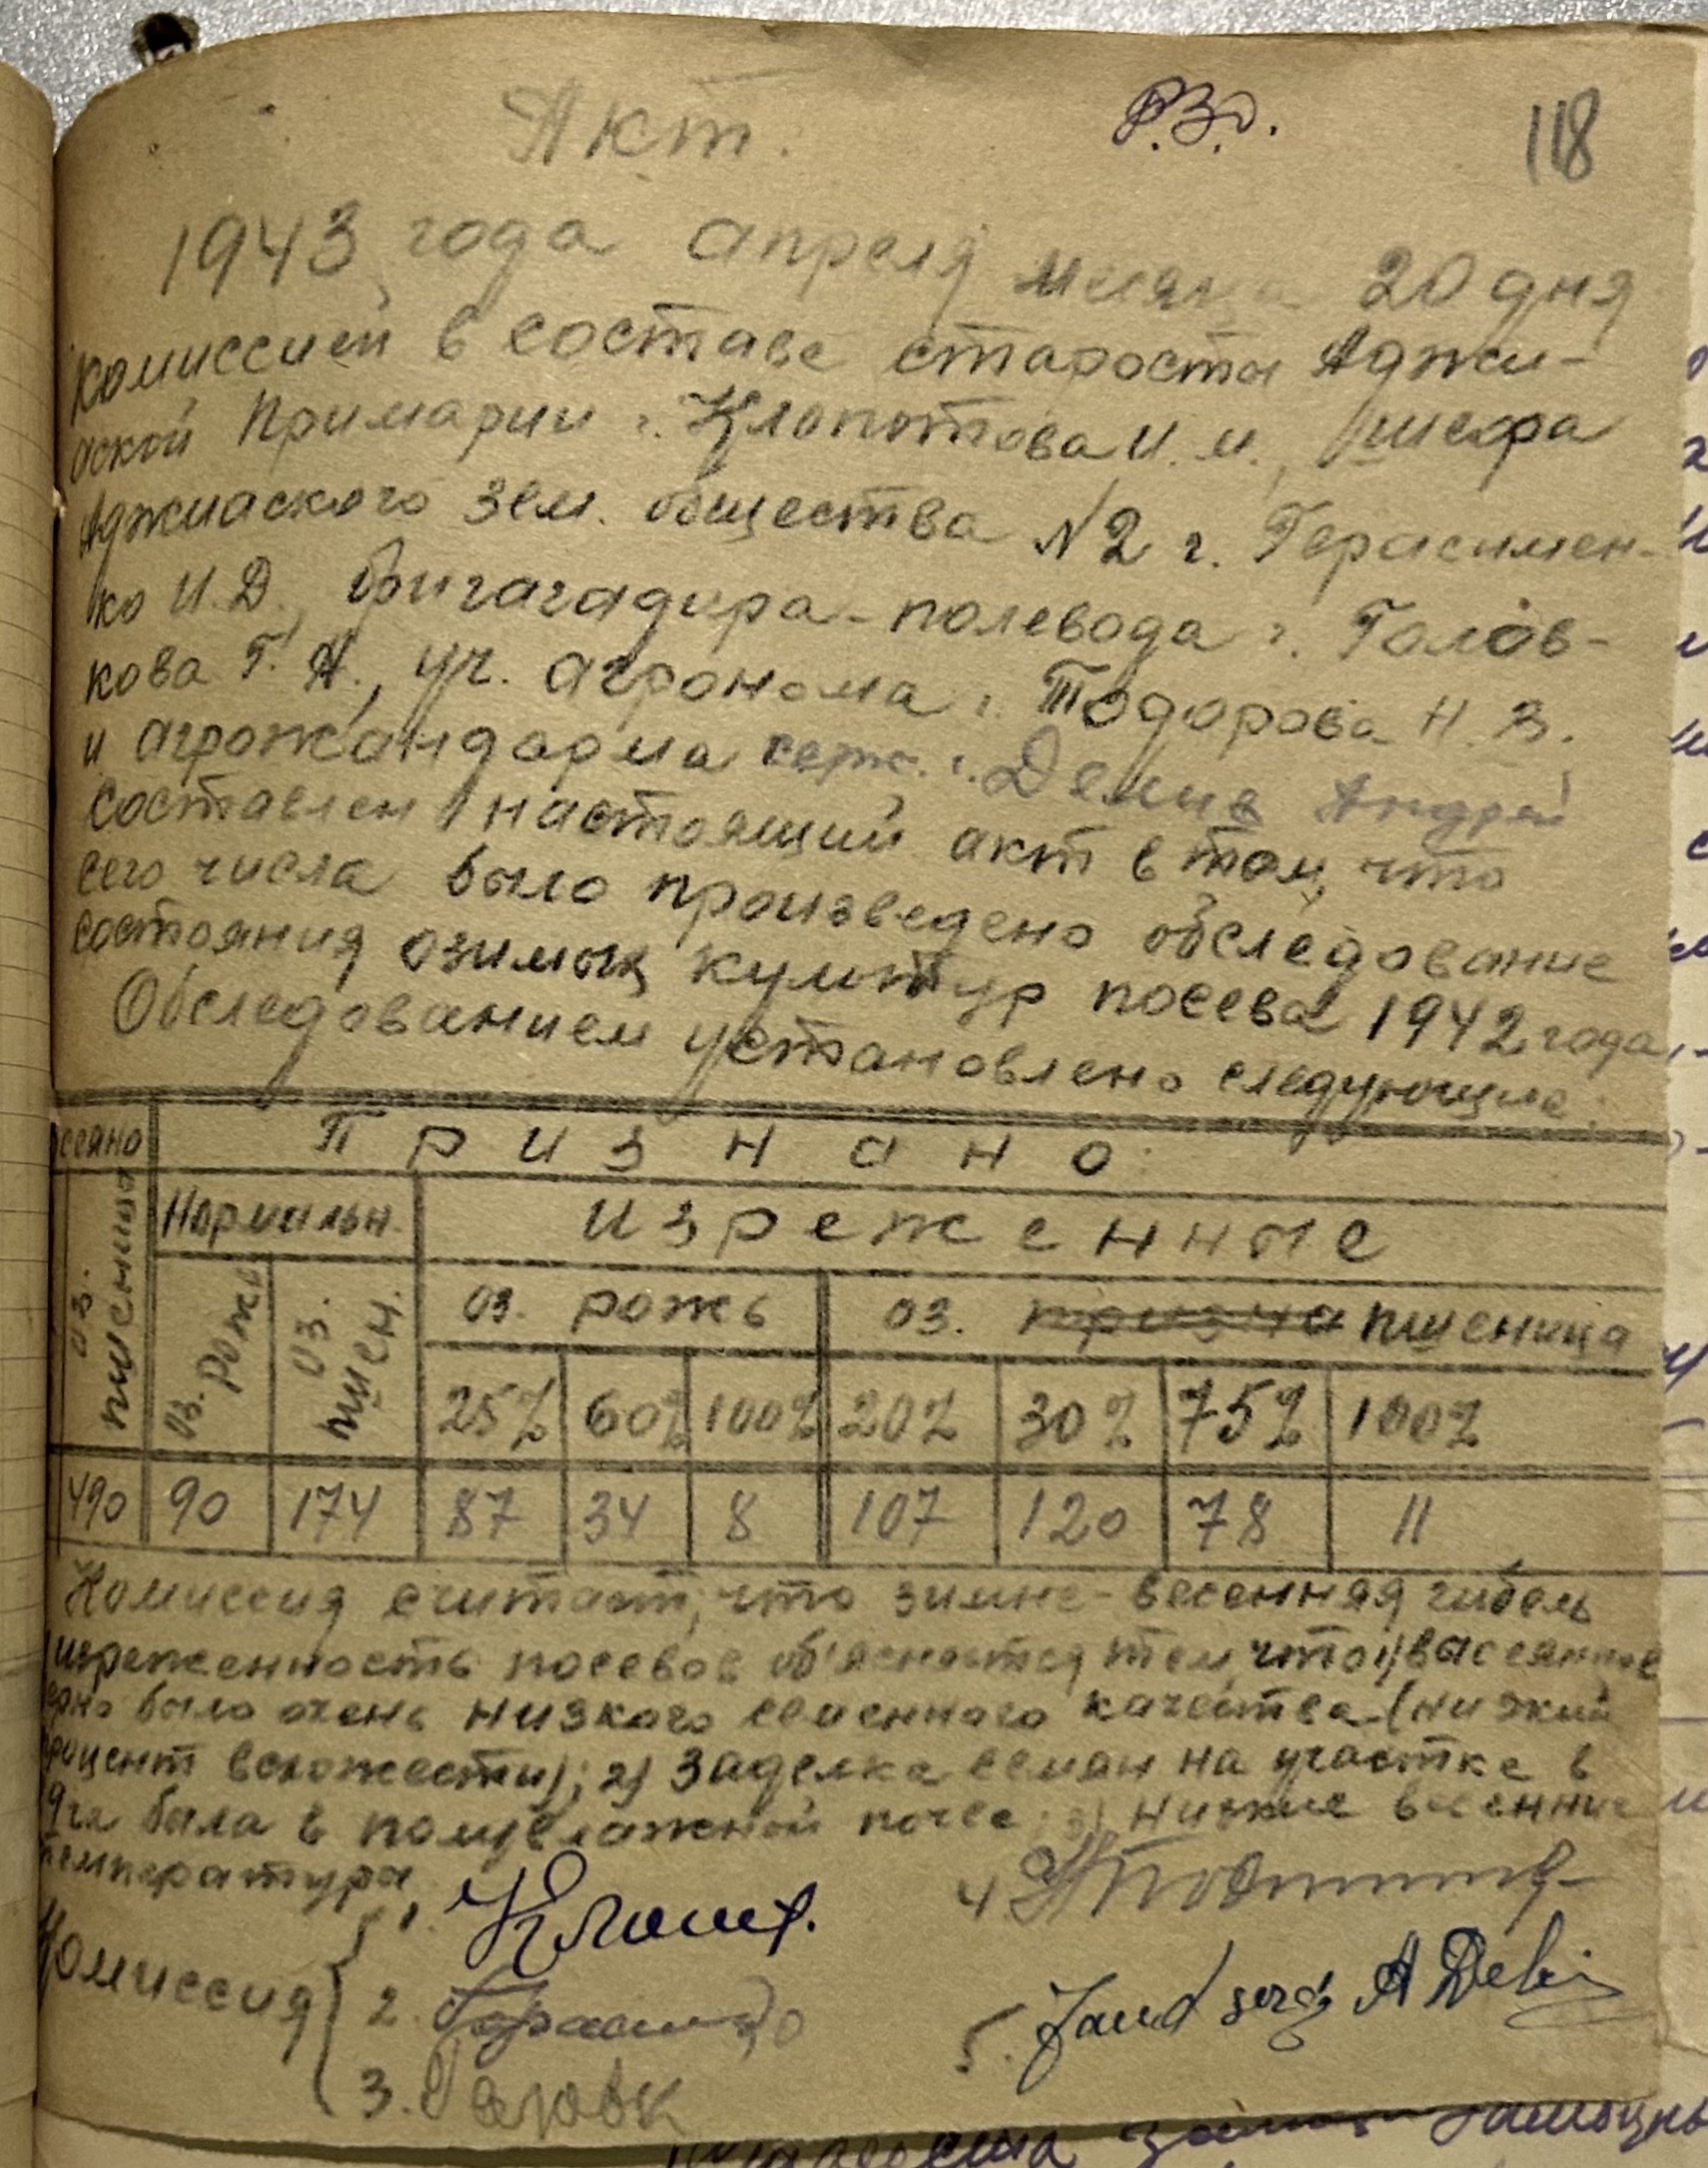 Акт.
Р.З.О.
118
1943 года апреля месяца 20 дня
комиссией в составе старосты Аджи-
аской Примарии г. Клопотова И. И., шефа
Аджиаского зем. общества №2 г. Герасимен-
ко И.Д., бригагадира-полевода г. Голов-
кова Г. А., уч. агронома г. Тодорова Н. З.
и агрожандарма серж. г. Делив Андрей
составлен настоящий акт в том, что
сего числа было произведено обследование
состояния озимых культур посева 1942 года.
Обследованием установлено следующие:
сеяно Признано
Нормальн. изреженные
оз. пшеница оз. рожь оз. пшен. оз. рожь оз. призна пшеница
25% 60% 100% 20% 30% 75% 100%
490 90 174 87 34 8 107 120 78 11
Комиссия считает, что зимне-весенняя гибель
изреженность посевов об'ясняется тем, что 1) высеянное
ерно было очень низкого семенного качества (низкий
процент всхожести); 2) заделка семян на участке в
9 га была в полувлажной почве; 3) низкие весенние
температуры.
Комиссия
1. Клопот.
2. Герасименко
3. Головк
4.
5. Jand serg A Deliv